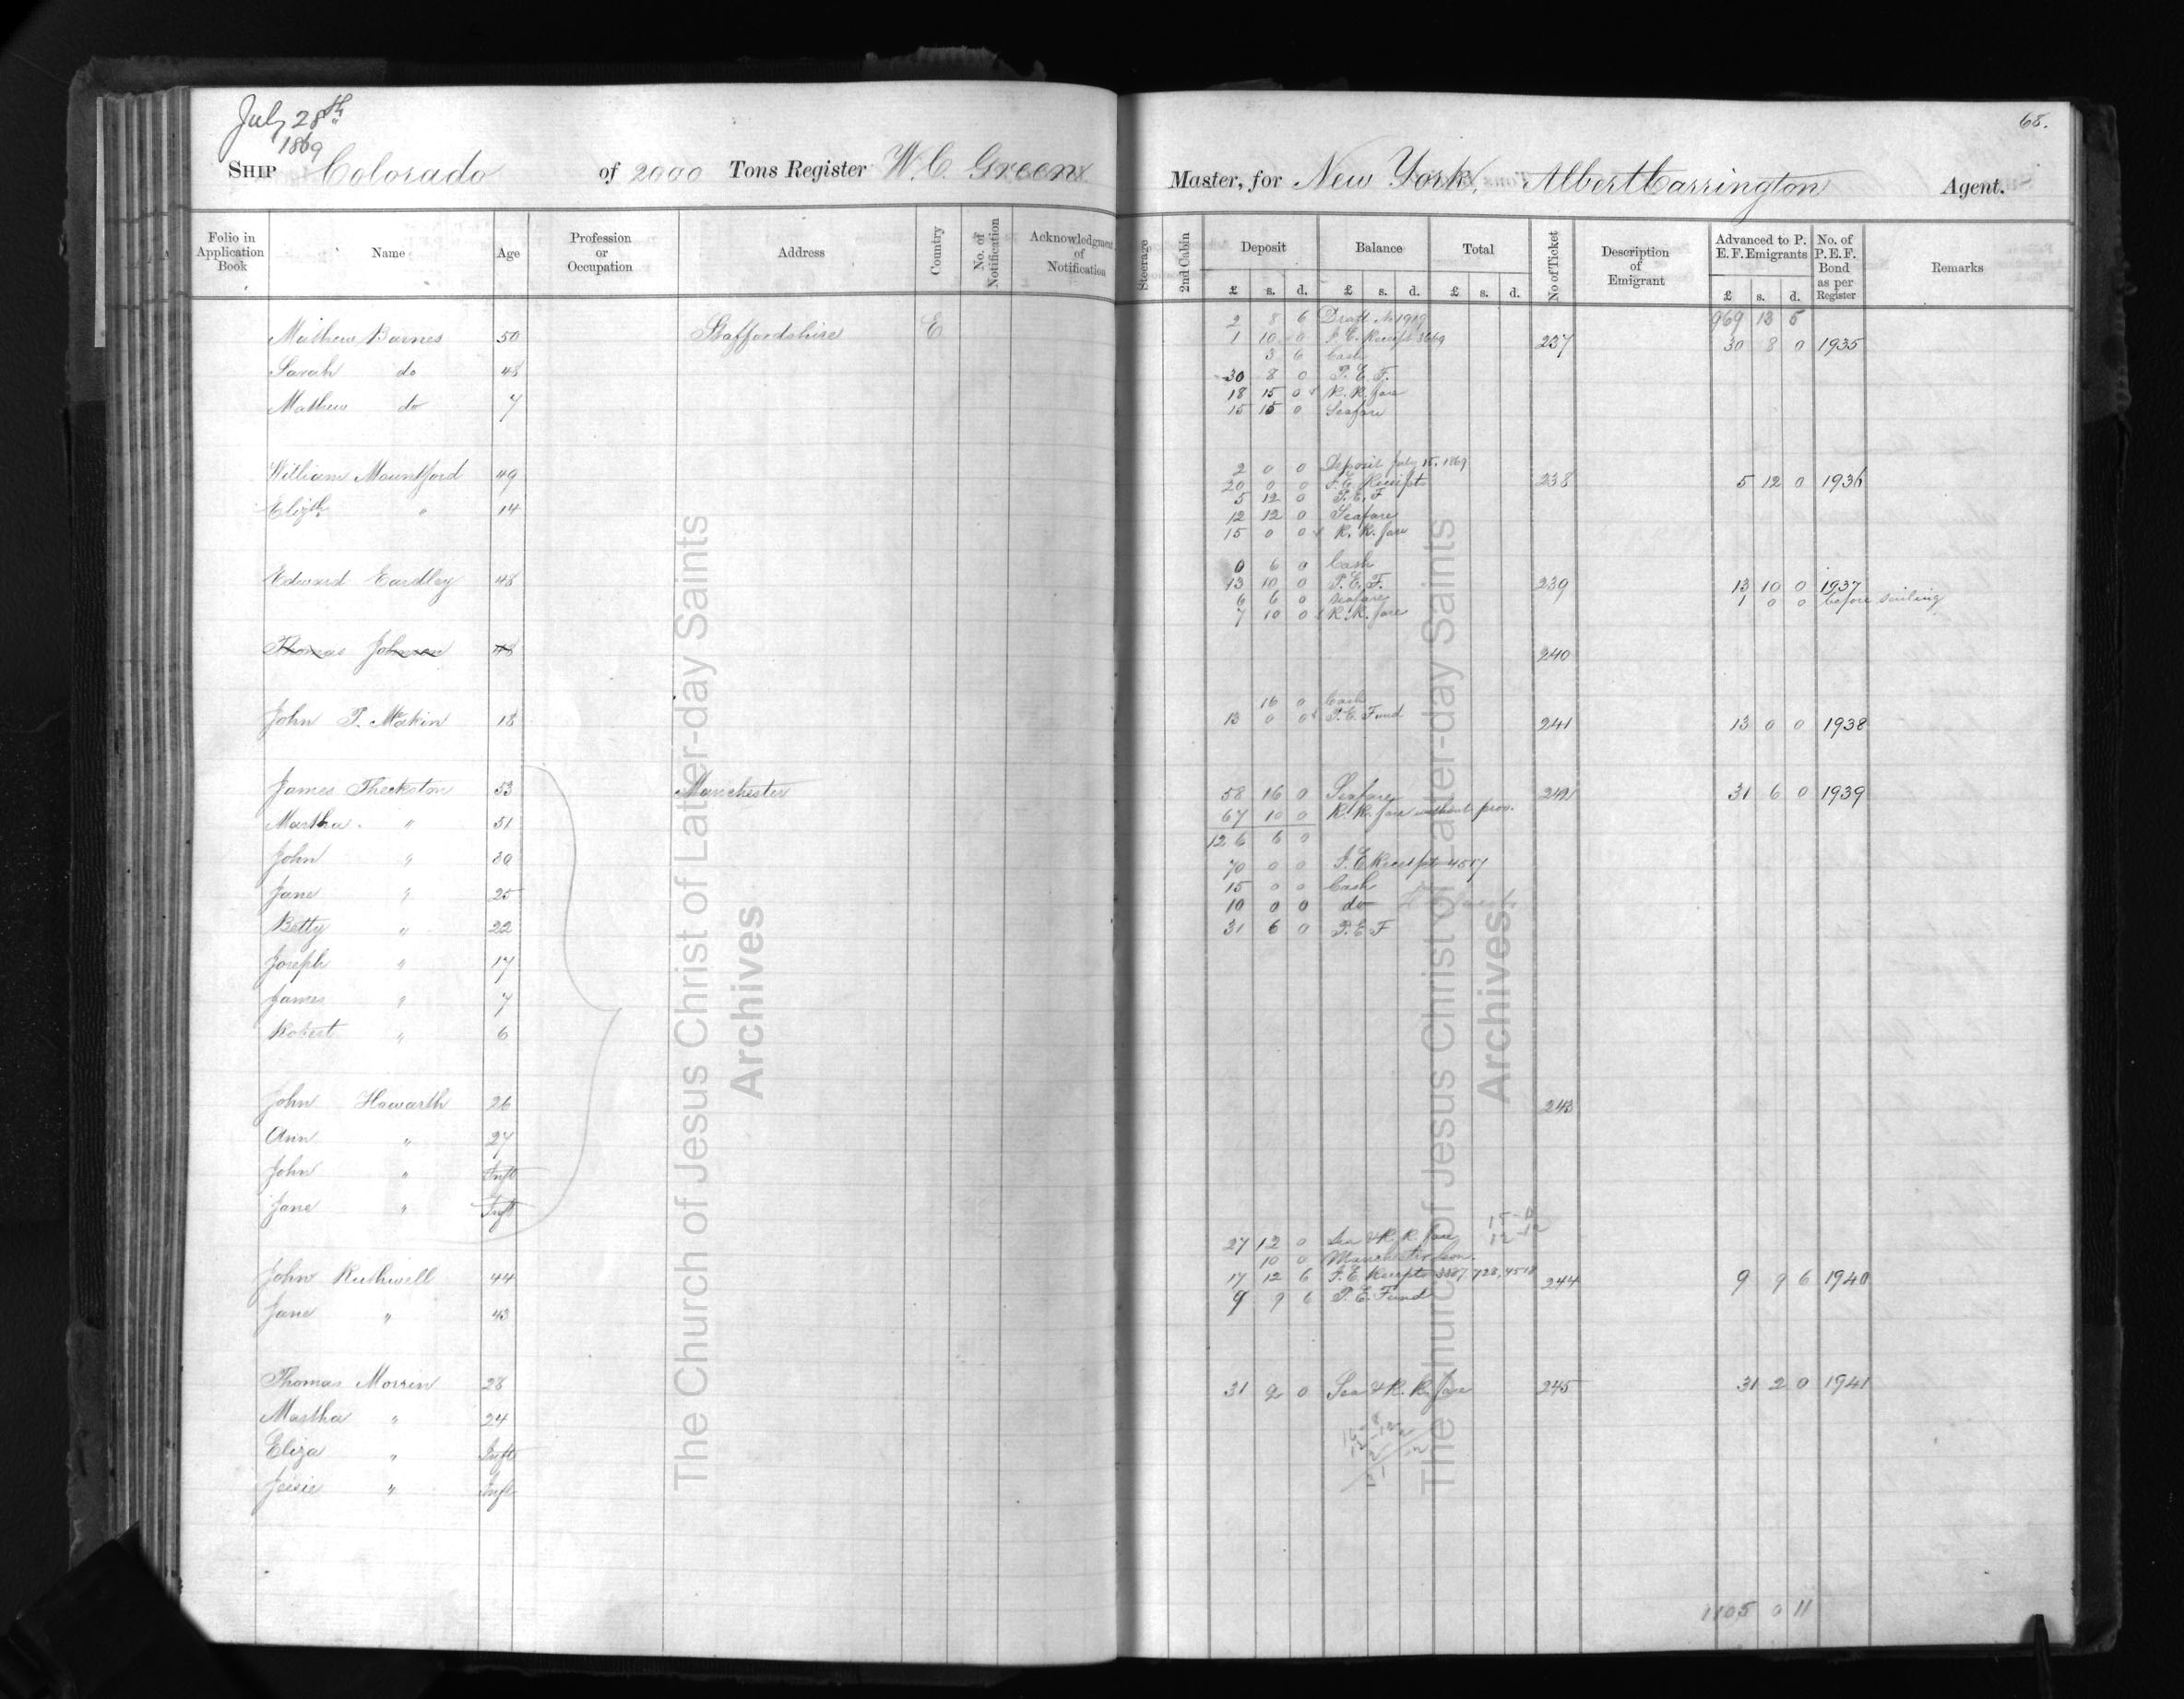 July 28th
1869
68.
SHIP Colorado of 2000 Tons Register W. C. Green Master, for New York, Albert Carrington Agent.
Folio in Application Book Name Age Profession or Occupation Address Country No. of Notification Acknowledgment of Notification Steerage 2nd Cabin Deposit Balance Total No of Ticket Description of Emigrant Advanced to P. E. F. Emigrants No. of P. E. F. Bond as per Register Remarks
£ s. d. £ s. d. £ s. d. £ s. d.
2 8 6 Draft No 1919 969 13 5
Mathew Barnes 50 Staffordshire E 1 10 0 I. E. Receipt 3669 237 30 8 0 1935
3 6 Cash
Sarah do 48 30 8 0 P. E. F.
18 15 0 R. R. fare
Mathew do 7 15 15 0 Seafare
2 0 0 Deposit July 15. 1869
William Mountford 49 20 0 0 I. E. Receipts 238 5 12 0 1936
5 12 0 P. E. F
Elizth " 14 12 12 0 Seafare
15 0 0 R. R. fare
0 6 0 Cash
Edward Eardley 48 13 10 0 P. E. F. 239 13 10 0 1937
6 6 0 Seafare 1 0 0 before sailing
7 10 0 R. R. fare
Thomas Johnson 48 240
16 0 Cash
John P. Makin 18 13 0 0 P. E. Fund 241 13 0 0 1938
James Theckston 53 Manchester 58 16 0 Seafare 242 31 6 0 1939
Martha " 51 67 10 0 R. R. fare without prov.
126 6 0
John " 30 70 0 0 I. E Receipt 4517
Jane " 25 15 0 0 Cash
10 0 0 do
Betty " 22 31 6 0 P. E F
Joseph " 17
James " 7
Robert " 6
John Howarth 26 243
Ann " 27
John " Inft
Jane " Inft
27 12 0 Sea & R. R fare
10 0 Manchester
John Ruthwell 44 17 12 6 I. E. Receipts 728, 4518 244 9 9 6 1940
Jane " 43 9 9 6 P. E. Fund
Thomas Morren 28 31 2 0 Sea & R. R. fare 245 31 2 0 1941
Martha " 24
Eliza " Inft
Jessie " Inft
1105 0 11
The Church of Jesus Christ of Latter-day Saints
Archives
The Church of Jesus Christ of Latter-day Saints
Archives